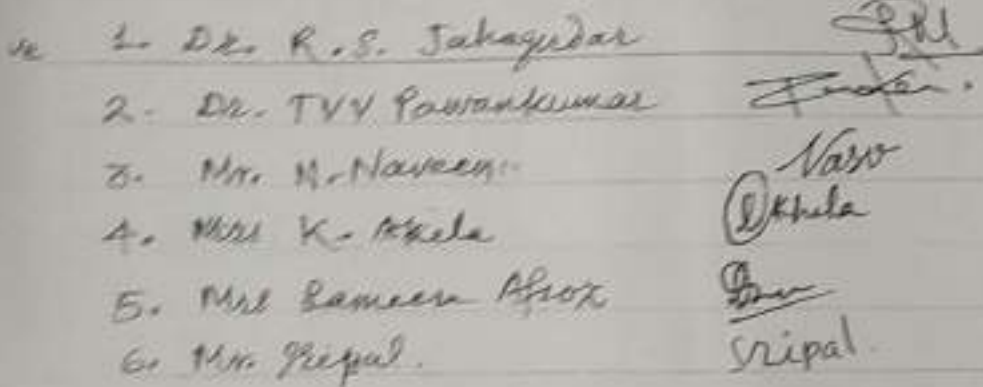 1. Dr. R.S. Jahagirdar
2. Dr. TVV Pawankumar
3. Mr. N. Naveen Naso
4. Miss K. Akela Akhela
5. Mrs Sameera Afroz
6. Mr. Sripal. Sripal.